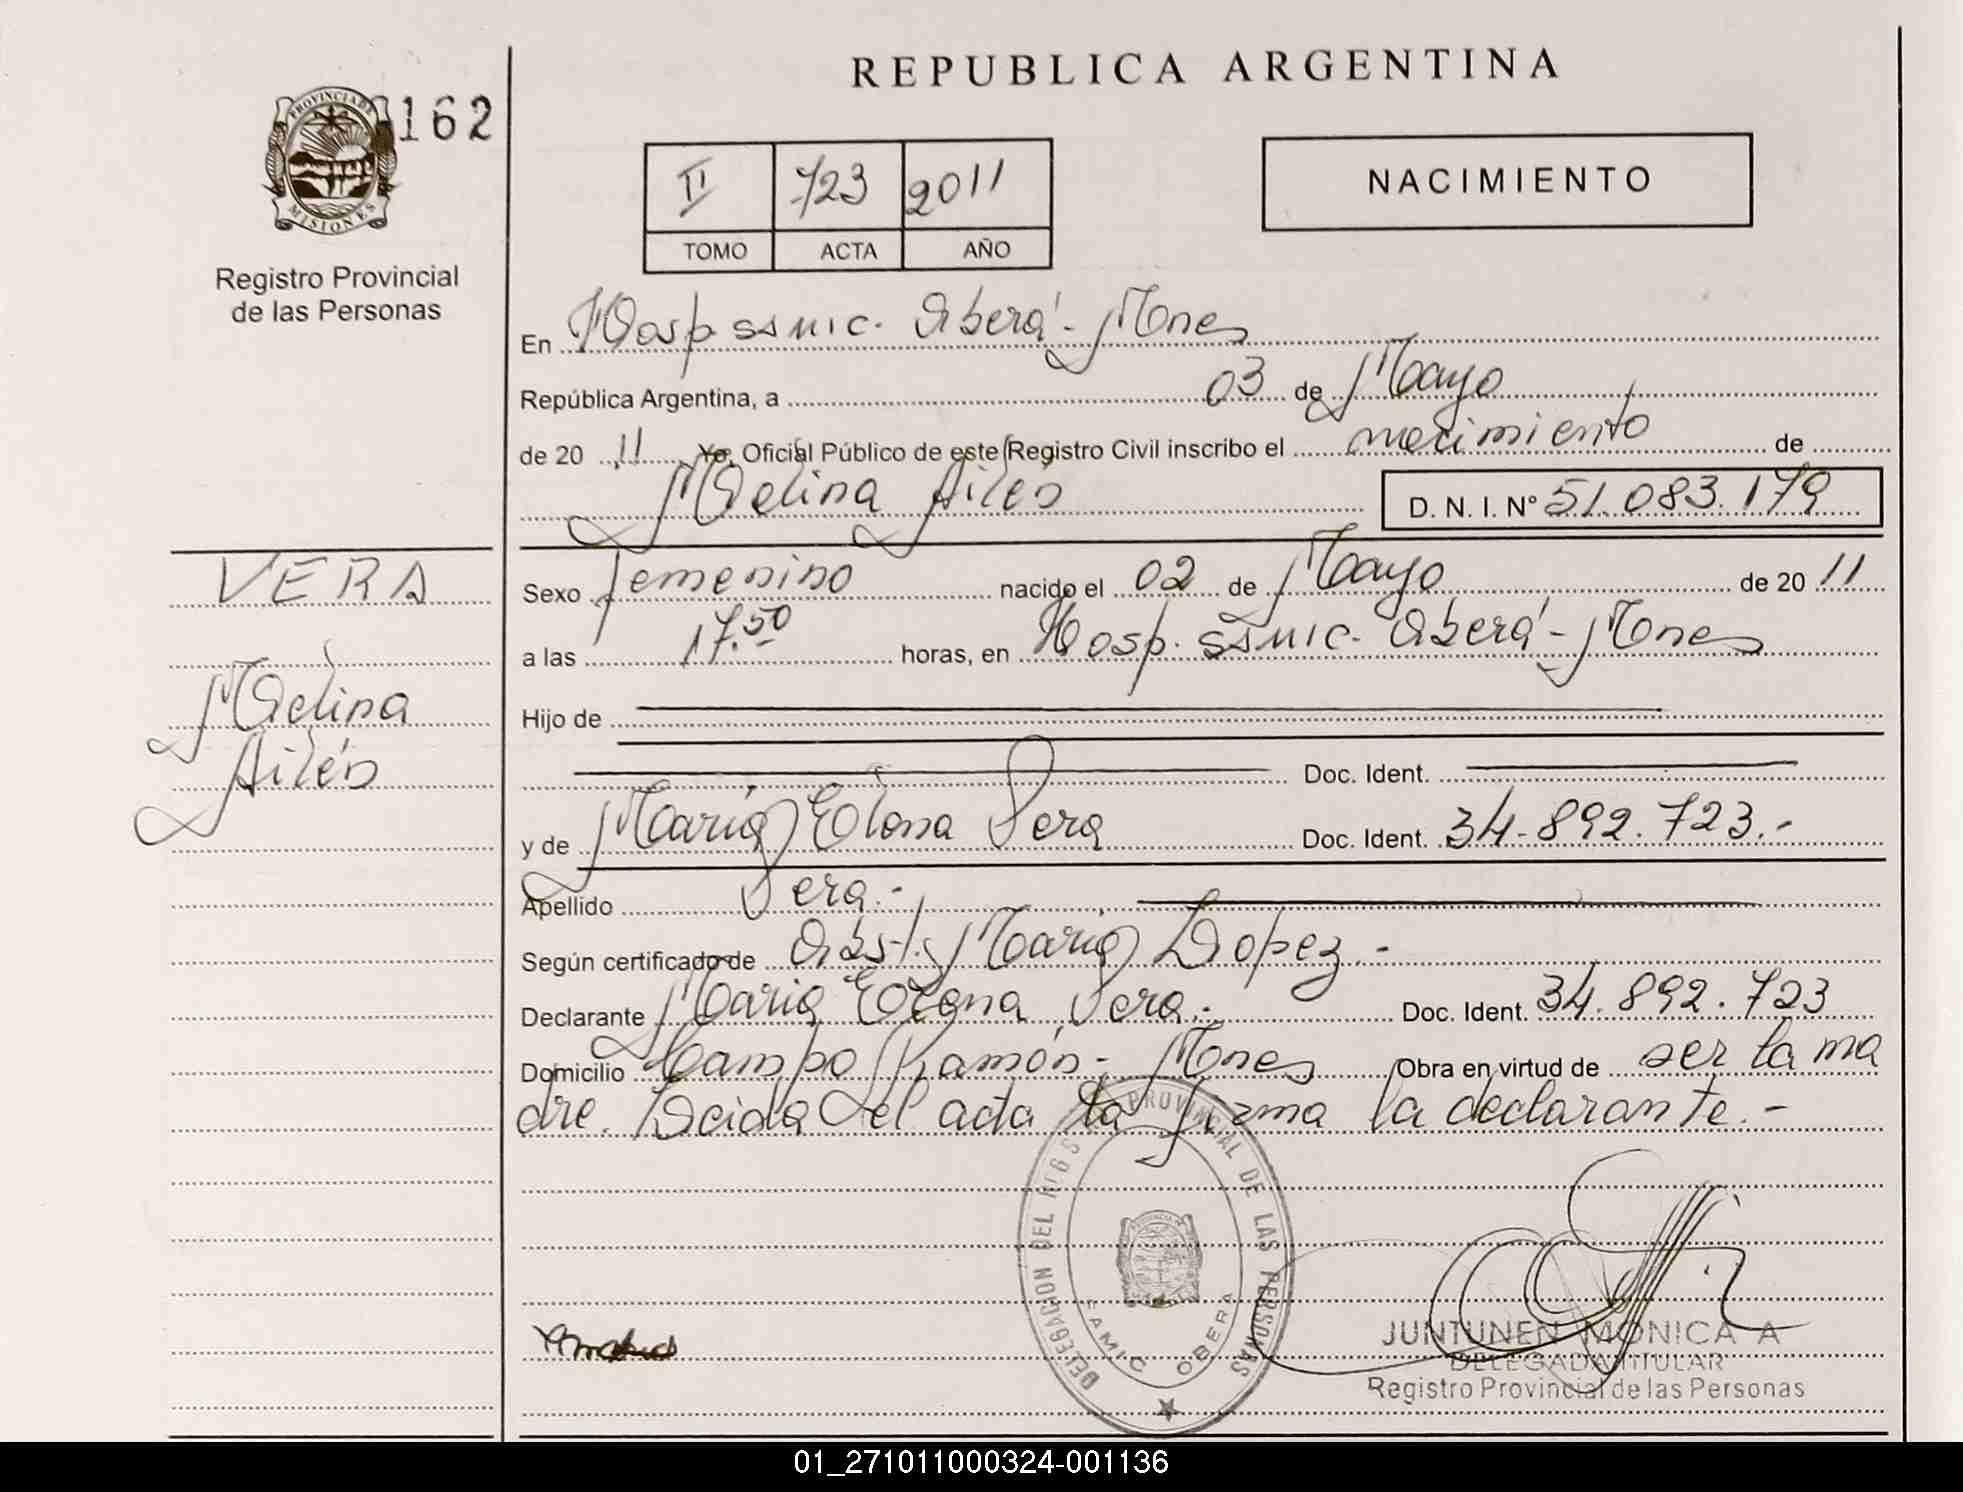 REPUBLICA ARGENTINA
PROVINCIA DE
MISIONES
162
Registro Provincial
de las Personas
II 723 2011
TOMO ACTA AÑO
NACIMIENTO
En Hosp SAMIC. Oberá - Mnes
República Argentina, a 03 de Mayo
de 20 11 Yo, Oficial Público de este Registro Civil inscribo el nacimiento de
Melina Ailén D. N. I. Nº 51.083.179
VERA
Melina
Ailén
Sexo femenino nacido el 02 de Mayo de 20 11
a las 17.50 horas, en Hosp. SAMIC. Oberá - Mnes
Hijo de
Doc. Ident.
y de María Elena Vera Doc. Ident. 34.892.723.-
Apellido Vera.-
Según certificado de Obst. María Lopez.-
Declarante María Elena Vera.- Doc. Ident. 34.892.723
Domicilio Campo Ramón - Mnes Obra en virtud de ser la ma
dre. Leida el acta la firma la declarante.-
DELEGACION DEL REGS PROVINCIAL DE LAS PERSONAS
SAMIC OBERA
JUNTUNEN MONICA A
DELEGADA TITULAR
Registro Provincial de las Personas
01_271011000324-001136